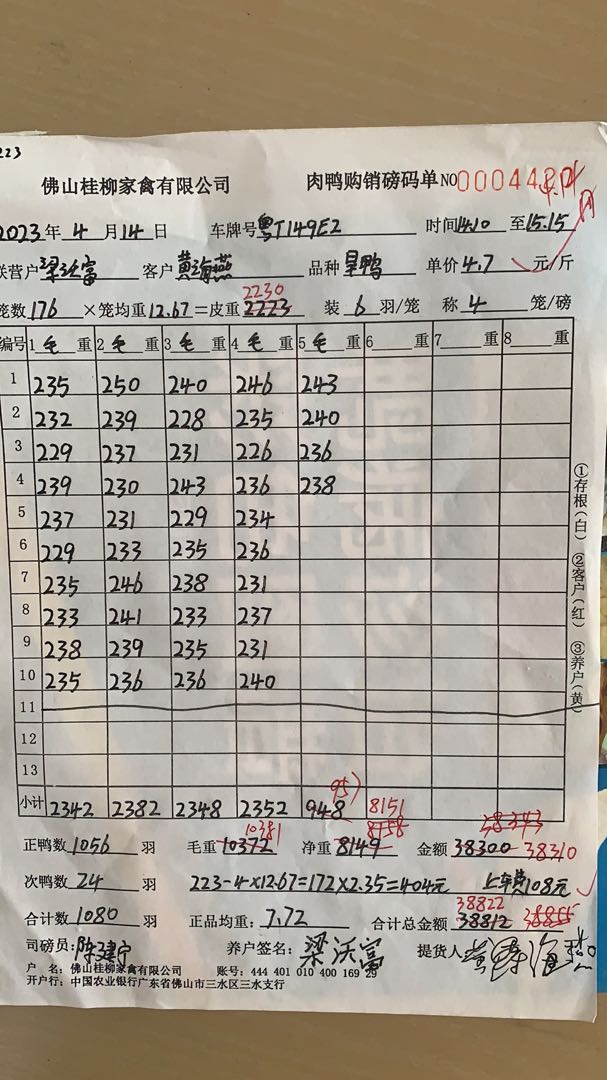 223
佛山桂柳家禽有限公司 肉鸭购销磅码单 NO
2023年 4 月 14 日 车牌号 粤T149E2 时间 14.10 至 15.15
联营户 梁沃富 客户 黄海燕 品种 单价 4.7 元/斤
2230
笼数 176 ×笼均重 12.67 =皮重 2223 装 6 羽/笼 称 4 笼/磅
编号 1 毛 重 2 毛 重 3 毛 重 4 毛 重 5 毛 重 6 重 7 重 8 重
1 235 250 240 246 243
2 232 239 228 235 240
3 229 237 231 226 236
4 239 230 243 236 238
5 237 231 229 234
6 229 233 235 236
7 235 246 238 231
8 233 241 233 237
9 238 239 235 231
10 235 236 236 240
11
12
13
小计 2342 2382 2348 2352 948 8151
10381 8158 38343
正鸭数 1056 羽 毛重 10372 净重 8149 金额 38300 38310
次鸭数 24 羽 223-4×12.67=172×2.35=404元 上车费108元
38822
合计数 1080 羽 正品均重: 7.72 合计总金额 38812 38855
司磅员: 陈建宁 养户签名: 梁沃富 提货人
户 名: 佛山桂柳家禽有限公司 账号: 444 401 010 400 169 29
开户行: 中国农业银行广东省佛山市三水区三水支行
①存根(白) ②客户(红) ③养户(黄)